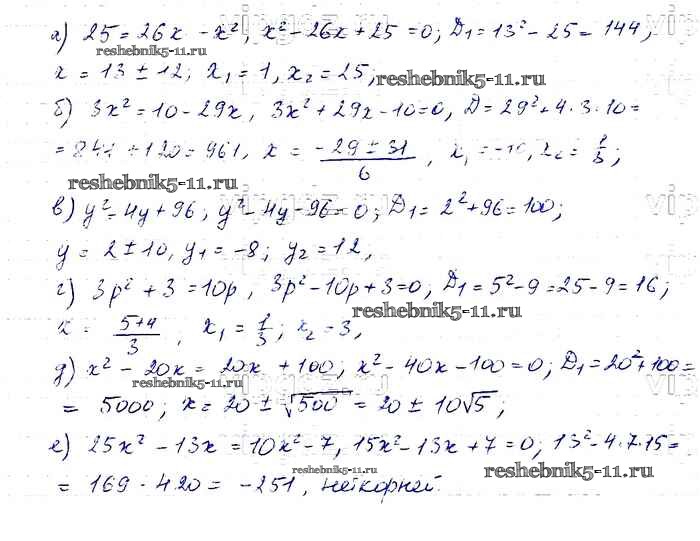 а) 25 = 26x - x², x² - 26x + 25 = 0; D₁ = 13² - 25 = 144;
reshebnik5-11.ru
x = 13 ± 12; x₁ = 1, x₂ = 25;
reshebnik5-11.ru
б) 3x² = 10 - 29x, 3x² + 29x - 10 = 0, D = 29² + 4·3·10 =
= 841 + 120 = 961, x = (-29 ± 31)/6, x₁ = -10, x₂ = 1/3;
reshebnik5-11.ru
в) y² = 4y + 96; y² - 4y - 96 = 0; D₁ = 2² + 96 = 100;
y = 2 ± 10, y₁ = -8; y₂ = 12,
г) 3p² + 3 = 10p, 3p² - 10p + 3 = 0, D₁ = 5² - 9 = 25 - 9 = 16;
reshebnik5-11.ru
x = (5+4)/3, x₁ = 1/3; x₂ = 3,
д) x² - 20x = 20x + 100; x² - 40x - 100 = 0; D₁ = 20² + 100 =
reshebnik5-11.ru
= 5000; x = 20 ± √500 = 20 ± 10√5;
е) 25x² - 13x = 10x² - 7, 15x² - 13x + 7 = 0; 13² - 4·7·15 =
reshebnik5-11.ru
reshebnik5-11.ru
= 169 - 420 = -251, нет корней.